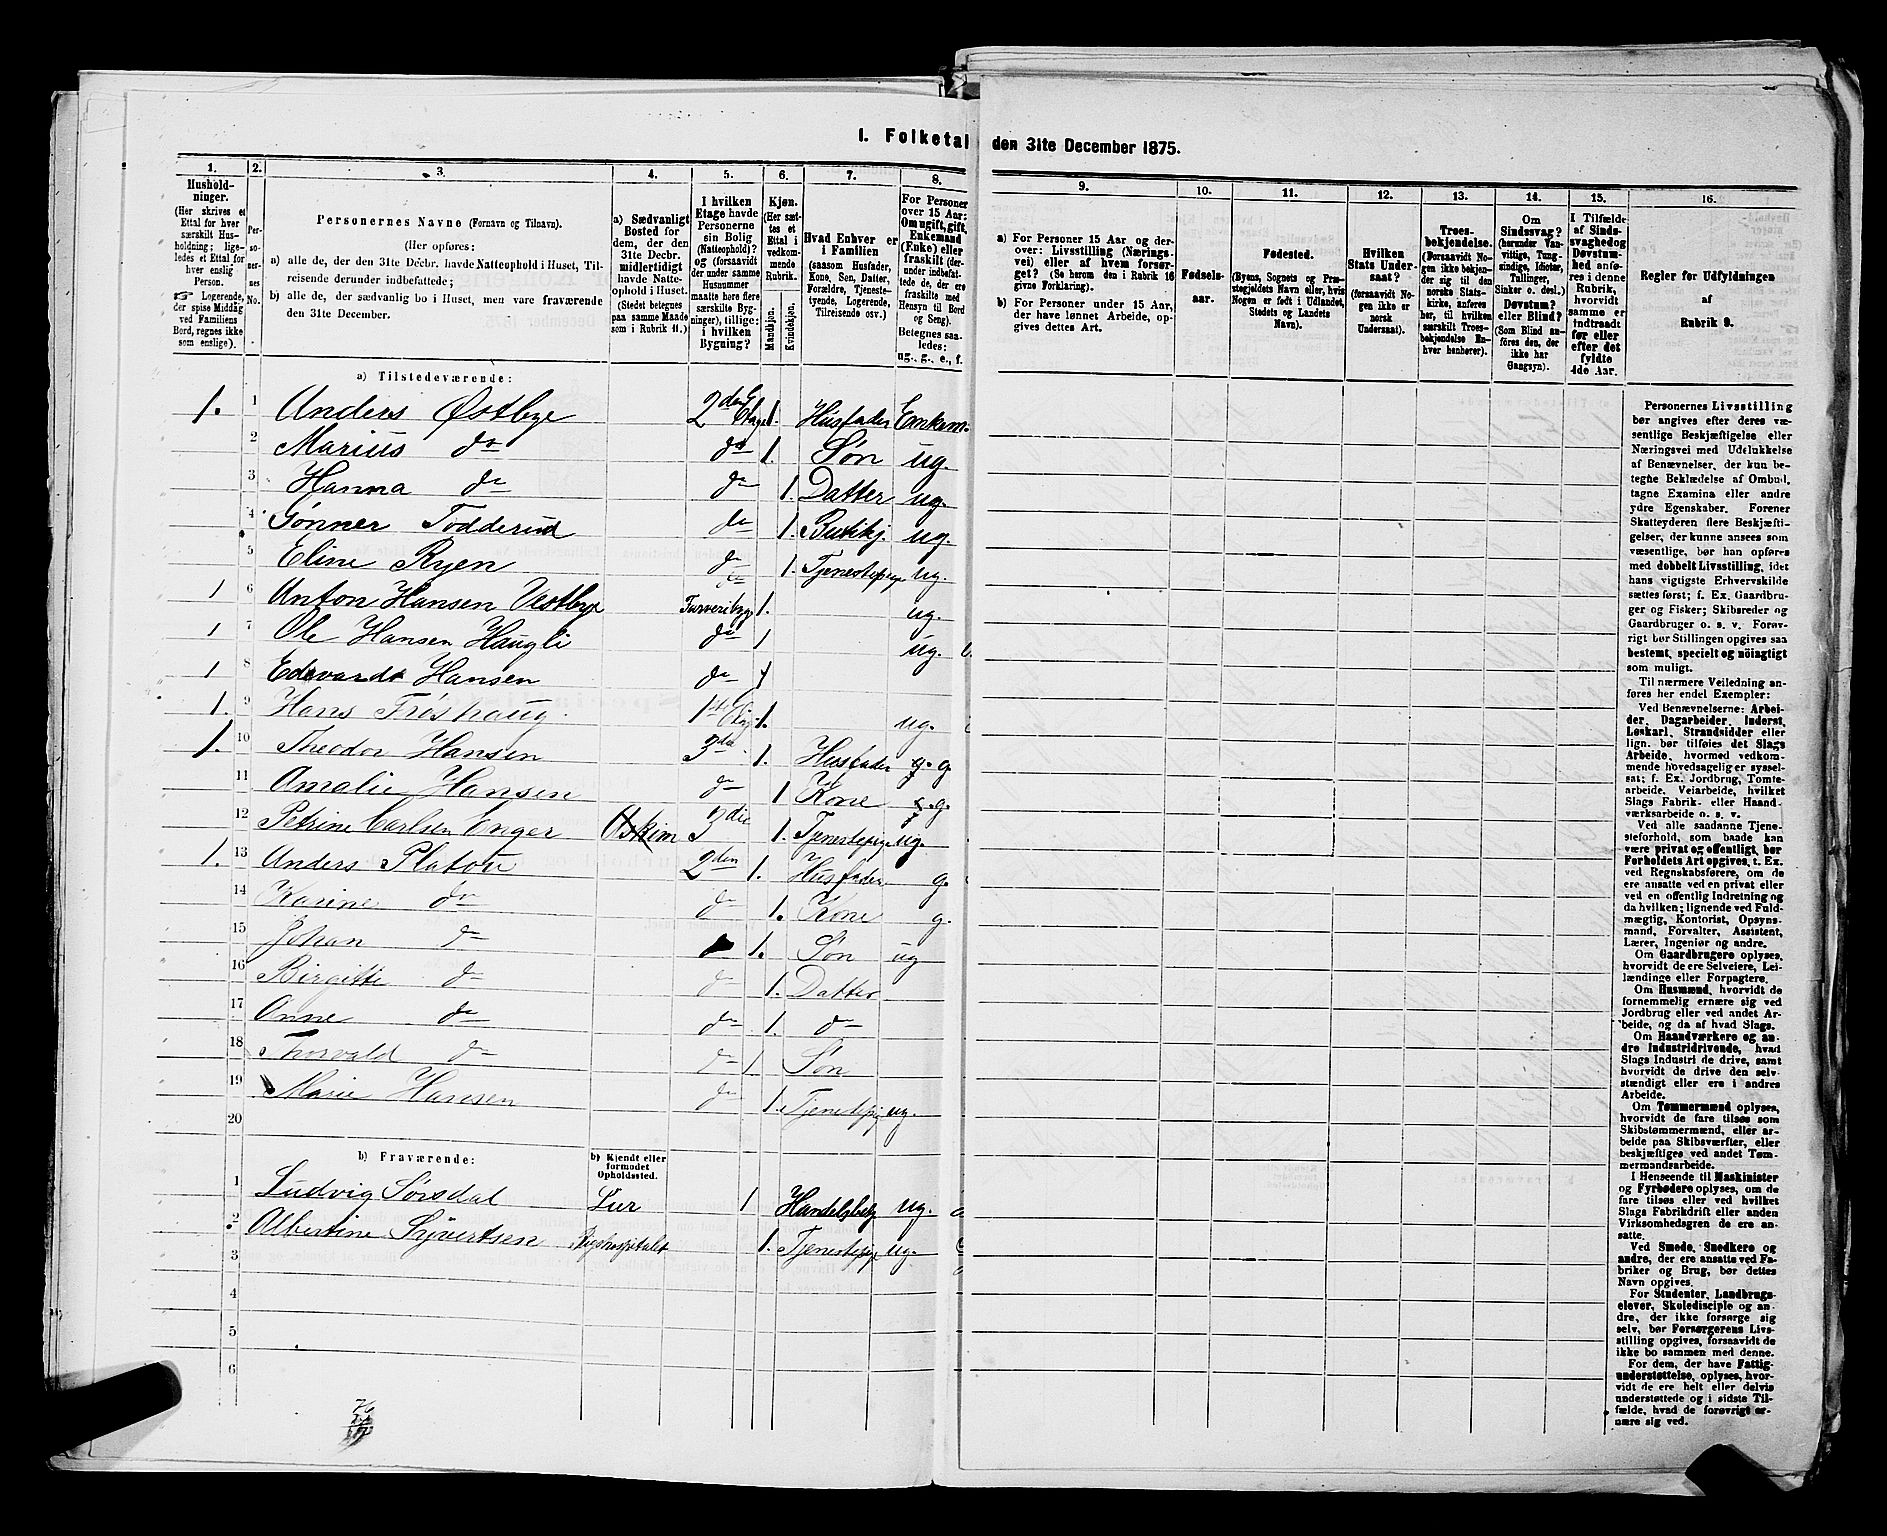 I. Folketal den 31te December 1875.
1. 2. 3. 4. 5. 6. 7. 8. 9. 10. 11. 12. 13. 14. 15. 16.
Hushold-
ninger.
(Her skrives et
Ettal for hver
særskilt Hus-
holdning; lige-
ledes et Ettal for
hver enslig
Person.
☞ Logerende,
der spise Middag
ved Familiens
Bord, regnes ikke
som enslige).
Per-
so-
ner-
nes
No.
Personernes Navne (Fornavn og Tilnavn).
(Her opføres:
a) alle de, der den 31te Decbr. havde Natteophold i Huset, Til-
reisende derunder indbefattede;
b) alle de, der sædvanlig bo i Huset, men vare fraværende
den 31te December.
a) Sædvanligt
Bosted for
dem, der den
31te Decbr.
midlertidigt
havde Natte-
ophold i Huset.
(Stedet betegnes
paa samme Maade
som i Rubrik 11.)
I hvilken
Etage havde
Personerne
sin Bolig
(Natteophold)?
og (forsaavidt
der under samme
Husnummer
maatte høre flere
særskilte Byg-
ninger), tillige:
i hvilken
Bygning?
Kjøn.
(Her sæt-
tes et
Ettal i
vedkom-
mende
Rubrik.
Mandkjøn.
Kvindekjøn.
Hvad Enhver er
i Familien
(saasom Husfader,
Kone, Søn, Datter,
Forældre, Tjeneste-
tyende, Logerende,
Tilreisende osv.)
For Personer
over 15 Aar:
Om ugift, gift,
Enkemand
(Enke) eller
fraskilt (der-
under indbefat-
tede de, der ere
fraskilte med
Hensyn til Bord
og Seng).
Betegnes saa-
ledes:
ug., g., e., f.
a) For Personer 15 Aar og der-
over: Livsstilling (Nærings-
vei) eller af hvem forsør-
get? (Se herom den i Rubrik 16
givne Forklaring).
b) For Personer under 15 Aar,
der have lønnet Arbeide, op-
gives dettes Art.
Fødsels-
aar.
Fødested.
(Byens, Sognets og Præ-
stegjeldets Navn eller, hvis
Nogen er født i Udlandet,
Stedets og Landets
Navn).
Hvilken
Stats Under-
saat?
(forsaavidt No-
gen ikke er
norsk
Undersaat).
Troes-
bekjendelse.
(Forsaavidt No-
gen ikke bekjen-
der sig til den
norske Stats-
kirke, anføres
her, til hvilken
særskilt Troes-
bekjendelse En-
hver henhører).
Om
Sindssvag?
(herunder Van-
vittige, Tung-
sindige, Idioter,
Tullinger,
Sinker o. desl.)
Døvstum?
eller Blind?
(Som Blind an-
føres den, der
ikke har
Gangsyn).
I Tilfælde
af Sinds-
svaghed og
Døvstum-
hed anfø-
res i denne
Rubrik,
hvorvidt
samme er
indtraadt
før eller
efter det
fyldte
4de Aar.
Regler for Udfyldningen
af
Rubrik 9.
a) Tilstedeværende:
1. 1 Anders Østbye 2den Etage 1. Husfader Enkem.
2 Marius do do 1. Søn ug.
3 Hanna do do 1. Datter ug.
4 Gønner Todderud do 1. Butikj. ug.
5 Eline Ryen do 1. Tjenestepige ug.
1 6 Anton Hansen Vestbye do 1. ug.
1 7 Ole Hansen Haugli do 1 ug.
1 8 Edevardt Hansen do 1
1. 9 Hans Frøshaug 1ste Etage 1. ug.
1. 10 Theodor Hansen 3die 1. Husfader g. g.
11 Amalie Hansen do 1 Kone g. g.
12 Petrine Carlsen Enger Askim 3die 1. Tjenestepige ug.
1. 13 Anders Platou 2den 1. Husfader g.
14 Karine do do 1. Kone g.
15 Johan do 1. Søn ug
16 Birgitte do do 1. Datter
17 Anne do do 1. do
18 Thorvald do do 1 Søn
19 Marie Hansen do 1. Tjenestepig ug.
20
b) Fraværende:
b) Kjendt eller
formodet
Opholdssted.
1 Ludvig Sørsdal Lier 1 Handelsbetj ug.
2 Albertine Syvertsen Rigshospitalet 1. Tjenestepige ug.
3
4
5
6
76
Personernes Livsstilling
bør angives efter deres væ-
sentlige Beskjæftigelse eller
Næringsvei med Udelukkelse
af Benævnelser, der kun be-
tegne Beklædelse af Ombud,
tagne Examina eller andre
ydre Egenskaber. Forener
Skatteyderen flere Beskjæfti-
gelser, der kunne ansees som
væsentlige, bør han opføres
med dobbelt Livsstilling, idet
hans vigtigste Erhvervskilde
sættes først; f. Ex. Gaardbru-
ger og Fisker; Skibsreder og
Gaardbruger o. s. v. Forøv-
rigt bør Stillingen opgives saa
bestemt, specielt og nöiagtigt
som muligt.
Til nærmere Veiledning an-
føres her endel Exempler:
Ved Benævnelserne: Arbei-
der, Dagarbeider, Inderst,
Løskarl, Strandsidder eller
lign. bør tilføies det Slags
Arbeide, hvormed vedkom-
mende hovedsagelig er syssel-
sat; f. Ex. Jordbrug, Tomte-
arbeide, Veiarbeide, hvilket
Slags Fabrik- eller Haand-
værksarbeide o. s. v.
Ved alle saadanne Tjene-
steforhold, som baade kan
være privat og offentligt, bør
Forholdets Art opgives, t. Ex.
ved Regnskabsførere, om de
ere ansatte ved en privat eller
ved en offentlig Indretning og
da hvilken; lignende ved Fuld-
mægtig, Kontorist, Opsyns-
mand, Forvalter, Assistent,
Lærer, Ingeniør og andre.
Om Gaardbrugere oplyses,
hvorvidt de ere Selveiere, Lei-
lændinge eller Forpagtere.
Om Husmænd, hvorvidt de
fornemmelig ernære sig ved
Jordbrug eller ved andet Ar-
beide, og da af hvad Slags.
Om Haandværkere og an-
dre Industridrivende, hvad
Slags Industri de drive, samt
hvorvidt de drive den selv-
stændigt eller ere i andres
Arbeide.
Om Tømmermænd oplyses,
hvorvidt de fare tilsøs som
Skibstømmermænd, eller ar-
beide paa Skibsværfter, eller
beskjæftiges ved andet Tøm-
mermandsarbeide.
I Henseende til Maskinister
og Fyrbødere oplyses, om de
fare tilsøs eller ved hvilket
Slags Fabrikdrift eller anden
Virksomhedsgren de ere an-
satte.
Ved Smede, Snedkere og
andre, der ere ansatte ved Fa-
briker og Brug, bør dettes
Navn opgives.
For Studenter, Landbrugs-
elever, Skoledisciple og an-
dre, der ikke forsørge sig
selv, bør Forsørgerens Livs-
stilling opgives, forsaavidt de
ikke bo sammen med denne.
For dem, der have Fattig-
understøttelse, oplyses, hvor-
vidt de ere helt eller delvis
understøttede og i sidste Til-
fælde, hvad de forøvrigt er-
nære sig ved.